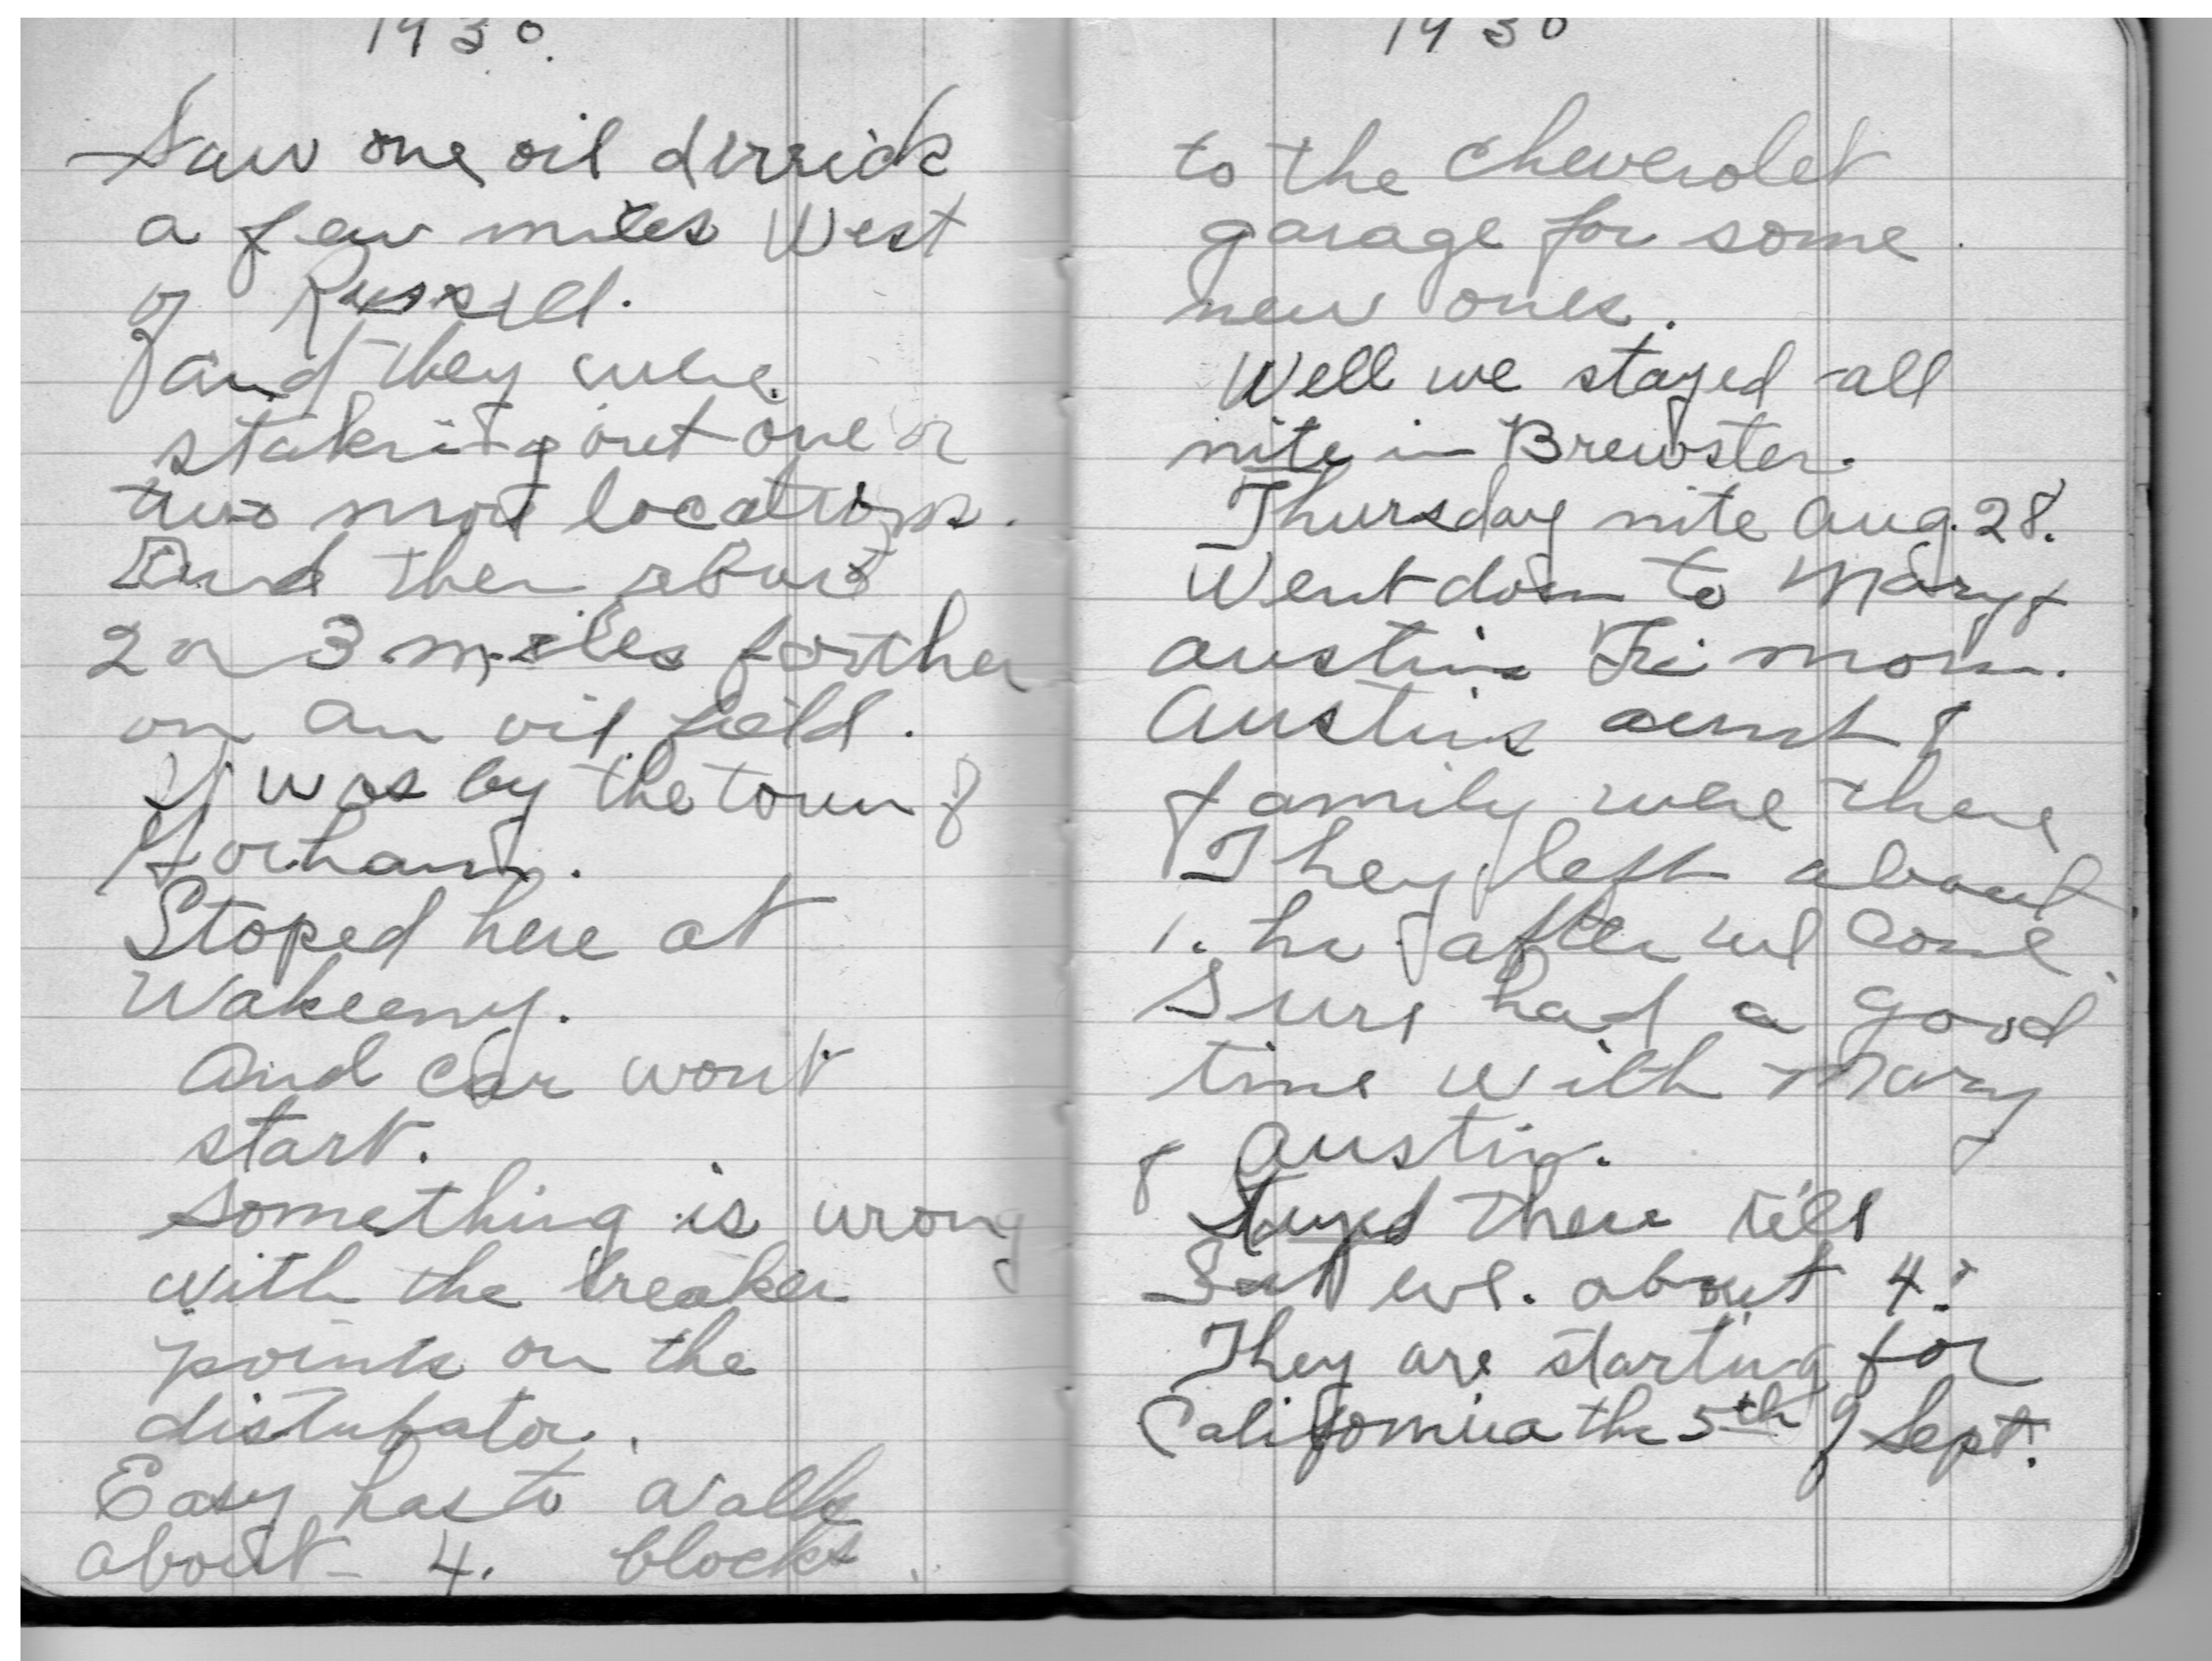 1930.
Saw one oil derrick
a few miles West
of Russell.
and they were
staking out one or
two more locations.
And then about
2 or 3 miles forther
on an oil field.
It was by the town of
Gorham.
Stoped here at
Wakeeny.
And car wont
start.
something is wrong
with the breaker
points on the
distubator.
Easy has to walk
about 4. blocks.
1930
to the cheverolet
garage for some
new ones.
Well we stayed all
nite in Brewster.
Thursday nite Aug. 28.
Went down to Mary &
Austins Fri morn.
Austins aunt &
family were there
They left about
1. hr after we come.
Sure had a good
time with Mary
& Austin.
Stayed there till
Sat eve. about 4:
They are starting for
California the 5th of Sept.